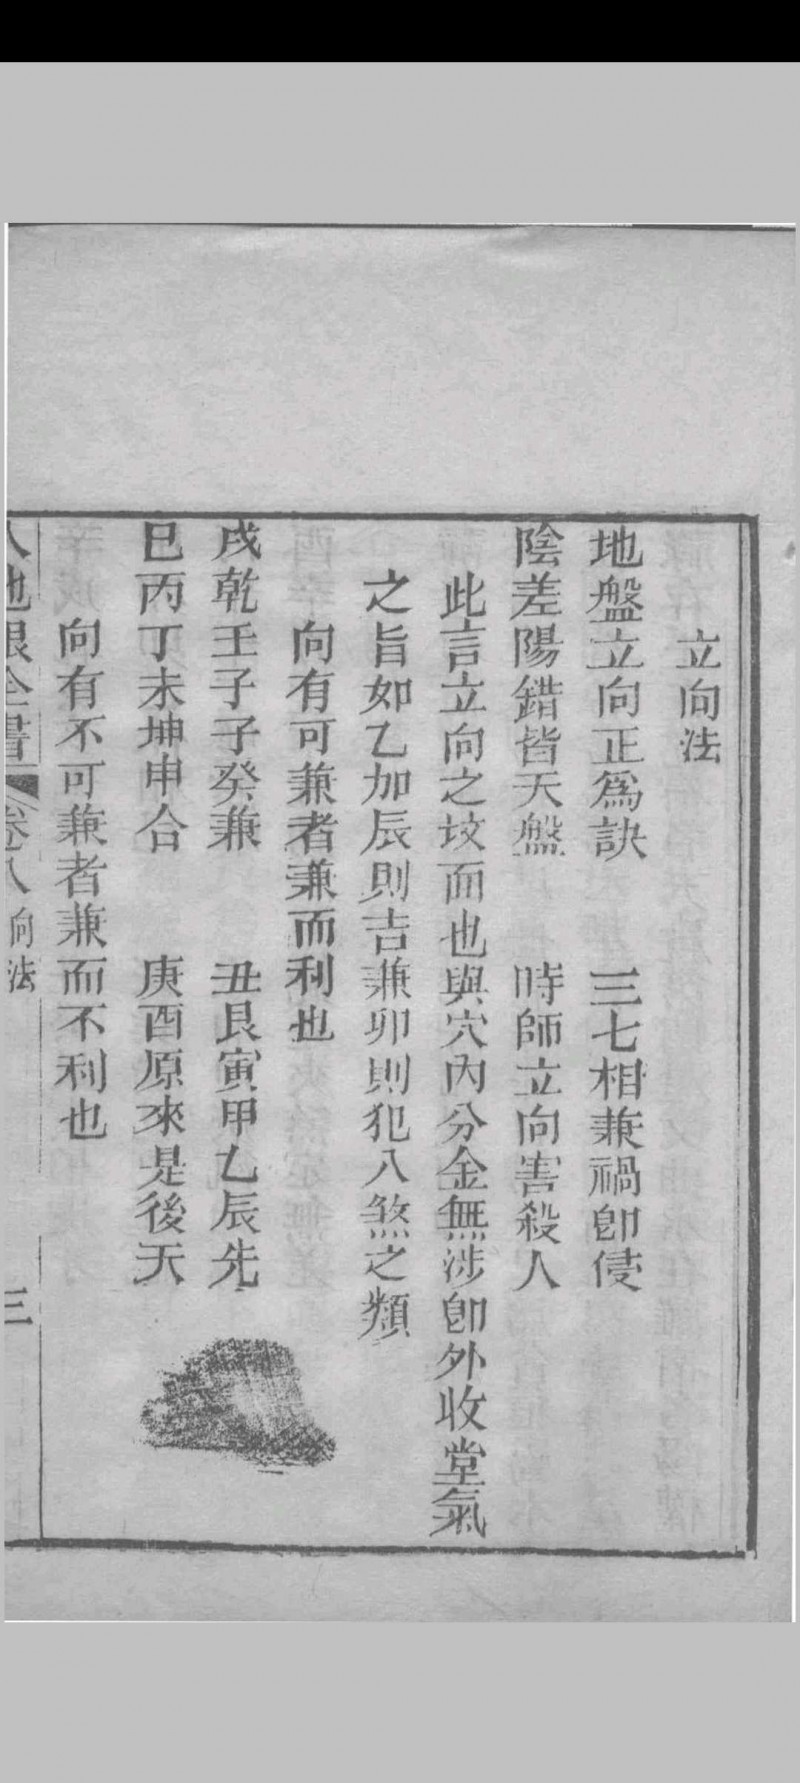 立向法
地盤立向正為訣　三七相兼禍卽侵
陰差陽錯皆天盤　時師立向害殺人
此言立向之坟面也與穴內分金無涉卽外收堂氣
之旨如乙加辰則吉兼卯則犯八煞之類
向有可兼者兼而利也
戌乾壬子子癸兼　丑艮寅甲乙辰先
巳丙丁未坤申合　庚酉原來是後天
向有不可兼者兼而不利也
地眼全書 卷八 向法 三